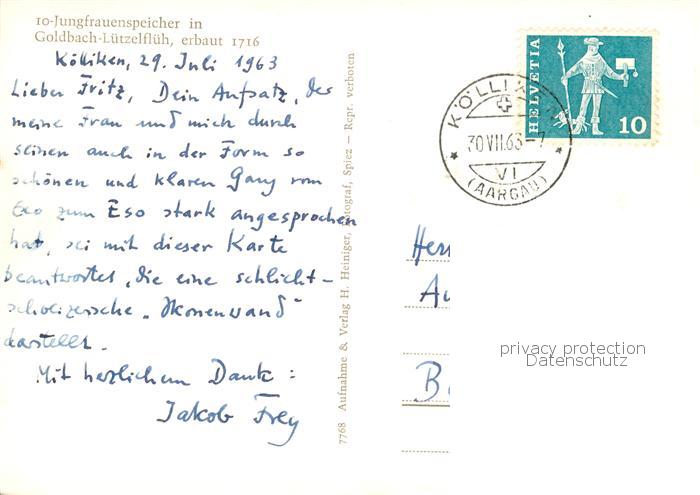 10-Jungfrauenspeicher in
Goldbach-Lützelflüh, erbaut 1716
Kölliken, 29. Juli 1963
Lieber Fritz, Dein Aufsatz, der
meine Frau und mich durch
seinen auch in der Form so
schönen und klaren Gang vom
Exo zum Eso stark angesprochen
hat, sei mit dieser Karte
beantwortet, die eine schlicht-
schweizerische „Ikonenwand"
darstellt.
Mit herzlichem Dank:
Jakob Frey
7768 Aufnahme & Verlag H. Heiniger, Fotograf, Spiez – Repr. verboten
HELVETIA
10
KÖLLIKEN
30.VII.63-7
VI
(AARGAU)
Herr
privacy protection
Datenschutz